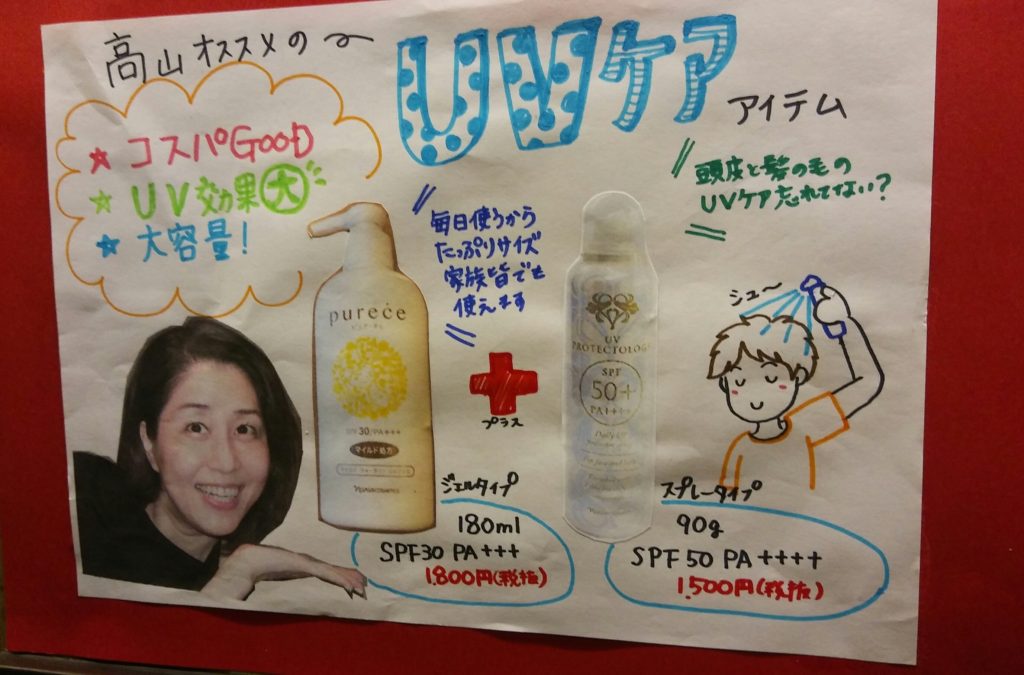 高山オススメの
UVケア
アイテム
★コスパGOOD
★UV効果大
★大容量！
毎日使うから
たっぷりサイズ
家族皆でも
使えます
頭皮と髪の毛の
UVケア忘れてない？
シュ〜
purece
SPF30/PA+++
マイルド処方
プラス
UV
PROTECTOLOGY
SPF
50+
PA++++
ジェルタイプ
180ml
SPF30 PA+++
1,800円(税抜)
スプレータイプ
90g
SPF50 PA++++
1,500円(税抜)